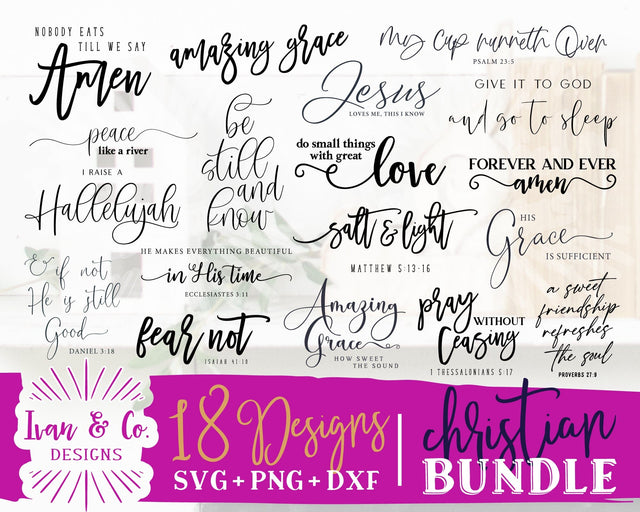 NOBODY EATS
TILL WE SAY
Amen
amazing grace
my cup runneth Over
PSALM 23:5
Jesus
LOVES ME, THIS I KNOW
GIVE IT TO GOD
and go to sleep
peace
like a river
be
still
and
know
do small things
with great
love
FOREVER AND EVER
amen
I RAISE A
Hallelujah
salt & light
MATTHEW 5:13-16
HIS
Grace
IS SUFFICIENT
HE MAKES EVERYTHING BEAUTIFUL
in His time
ECCLESIASTES 3:11
& if not
He is still
Good
DANIEL 3:18
fear not
ISAIAH 41:10
Amazing
Grace
HOW SWEET
THE SOUND
pray
WITHOUT
Ceasing
1 THESSALONIANS 5:17
a sweet
friendship
refreshes
the soul
PROVERBS 27:9
Ivan & Co.
DESIGNS
18 Designs
SVG + PNG + DXF
christian
BUNDLE